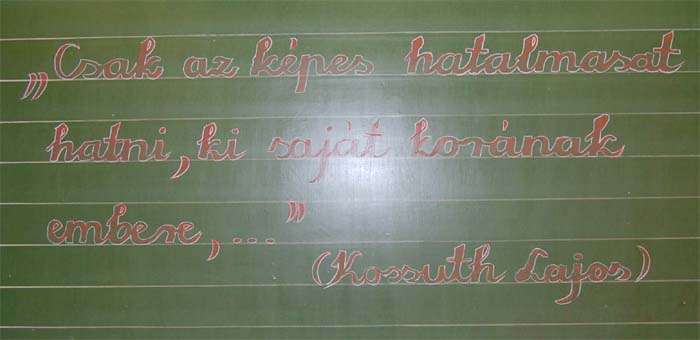 „Csak az képes hatalmasat
hatni, ki saját korának
embere, ..."
(Kossuth Lajos)